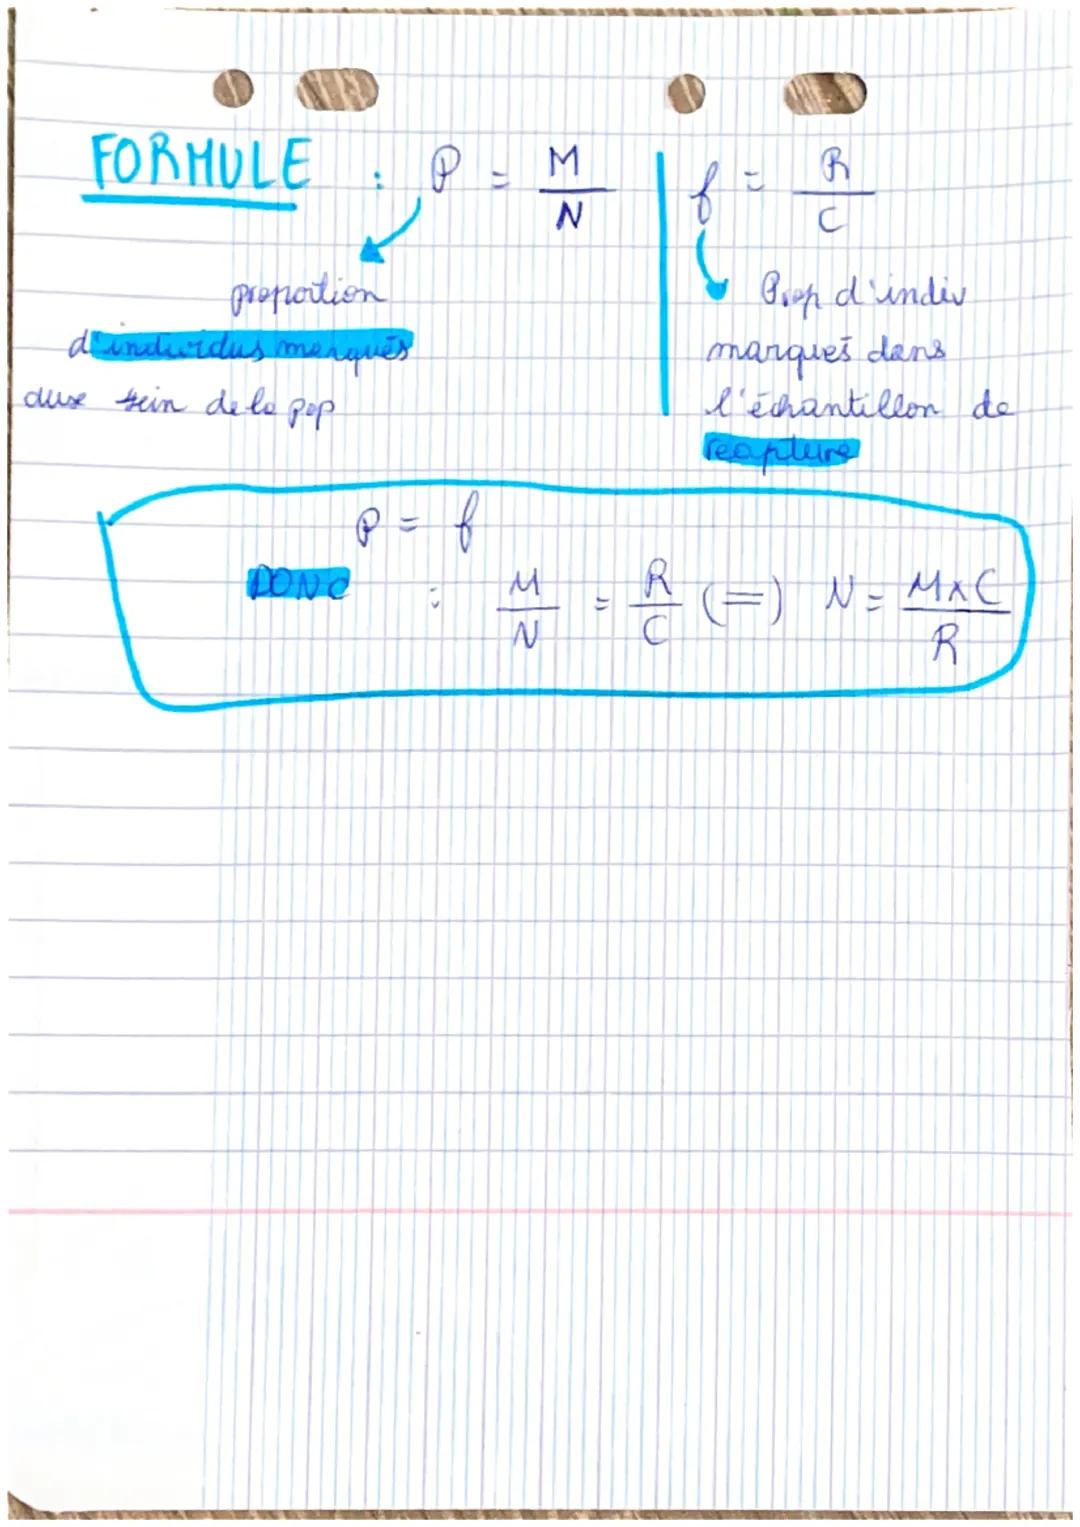 FORMULE : P = M/N
proportion
d'individus marqués
sein de la pop
f = R/C
Prop d'indiv
marqués dans
l'échantillon de
recapture
P = f
DONC : M/N = R/C (=) N = M×C/R